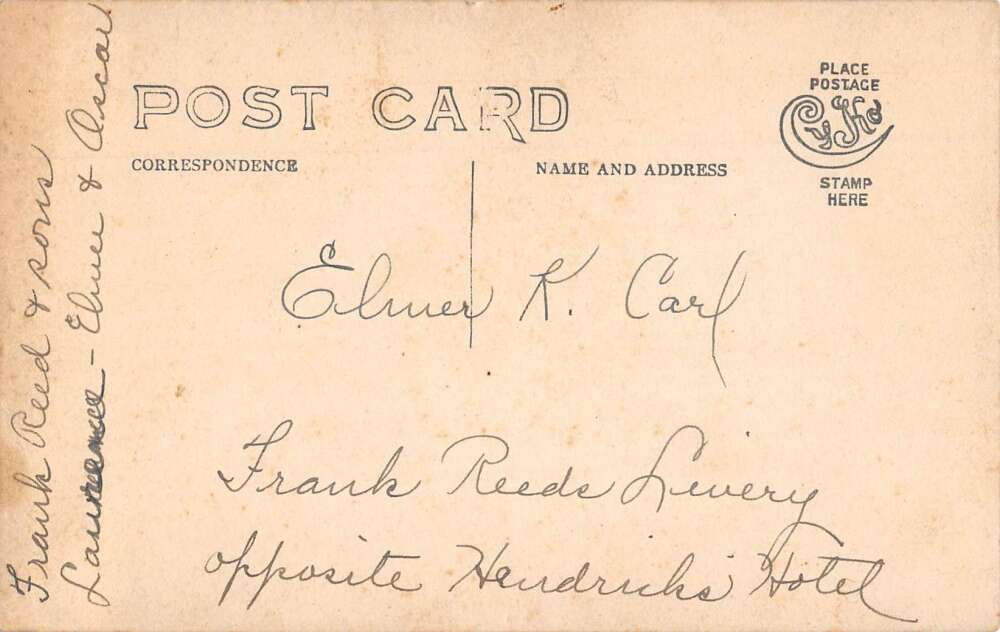 POST CARD
CORRESPONDENCE
NAME AND ADDRESS
PLACE
POSTAGE
CyKo
STAMP
HERE
Elmer K. Carl
Frank Reeds Livery
opposite Hendricks Hotel
Frank Reed & sons
Lawreance - Elmer & Oscar